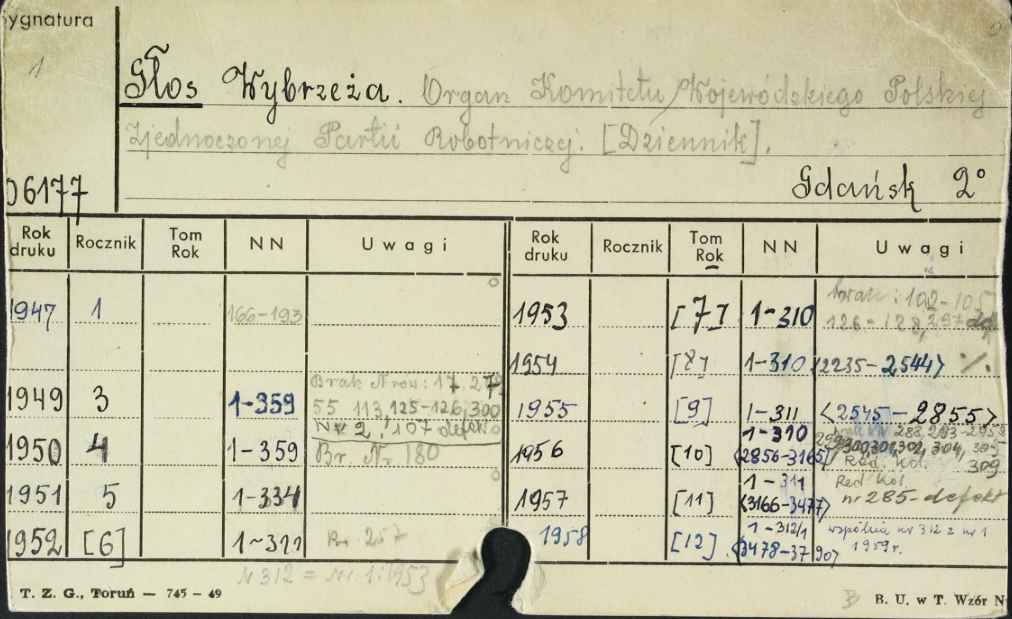 ygnatura
1
Głos Wybrzeża. Organ Komitetu Wojewódzkiego Polskiej
Zjednoczonej Partii Robotniczej. [Dziennik].
06177
Gdańsk 2°
Rok druku Rocznik Tom Rok NN Uwagi
1947 1 166-193
1949 3 1-359 Brak Nrów: 17, 272
55 113, 125-126, 300
Nr 2, 107 defekt
1950 4 1-359 Br. Nr. 180
1951 5 1-334
1952 [6] 1-311 Br. 257
N 312 = Nr 1:1953
Rok druku Rocznik Tom Rok NN Uwagi
1953 [7] 1-310 brak: 102-105
126-128, 297
1954 [8] 1-310 <2235-2544> %.
1955 [9] 1-311 <2545-2855>
1956 [10] 1-310 <2856-3165> 288, 293-295
300, 301, 302, 304, 305
Red. Kol. 309
1957 [11] 1-311 <3166-3477> Red Kol.
nr 285-defekt
1958 [12] 1-312/1 <3478-3790> wspólna nr 312 z nr 1
1959 r.
T. Z. G., Toruń — 745 - 49
B. U. w T. Wzór N